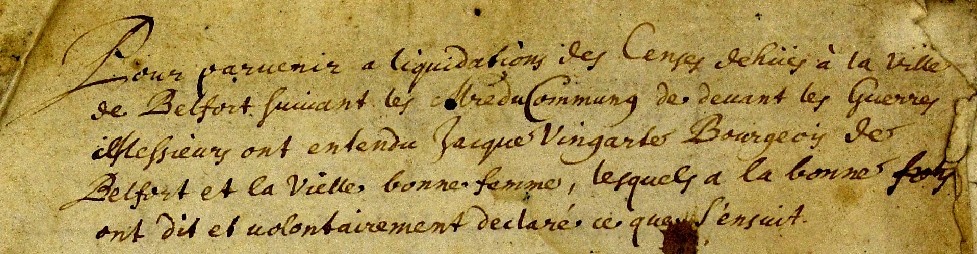 Pour parvenir a liquidations des Censes dehües à la Ville
de Belfort suivant les du Commung de devant les Guerres
Messieurs ont entendu Jacque Vingarte Bourgeois de
Belfort et la Vielle bonne femme, lesquels a la bonne
ont dit et volontairement declaré ce que s'ensuit.